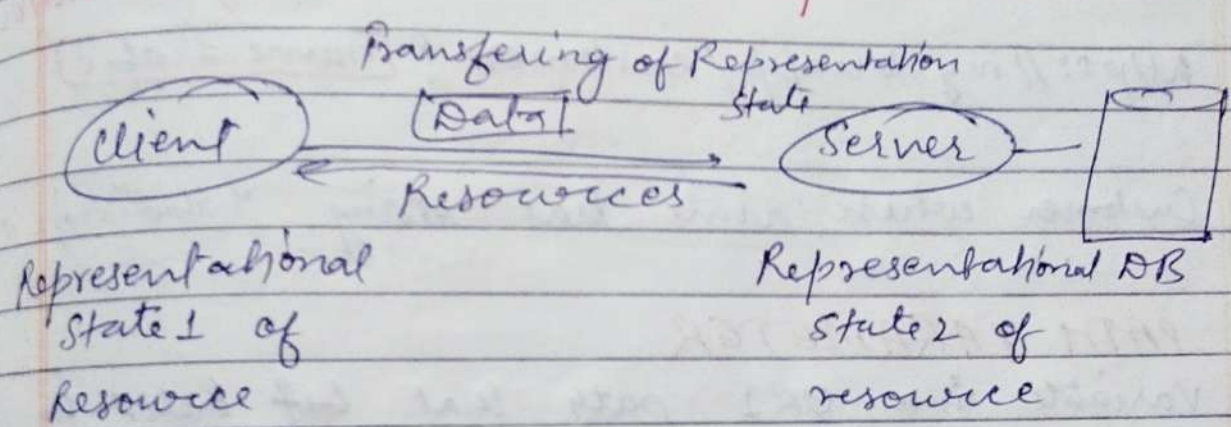 Transfering of Representation
State
Client
Data
Server
Resources
Representational
State 1 of
Resource
Representational DB
State 2 of
resource